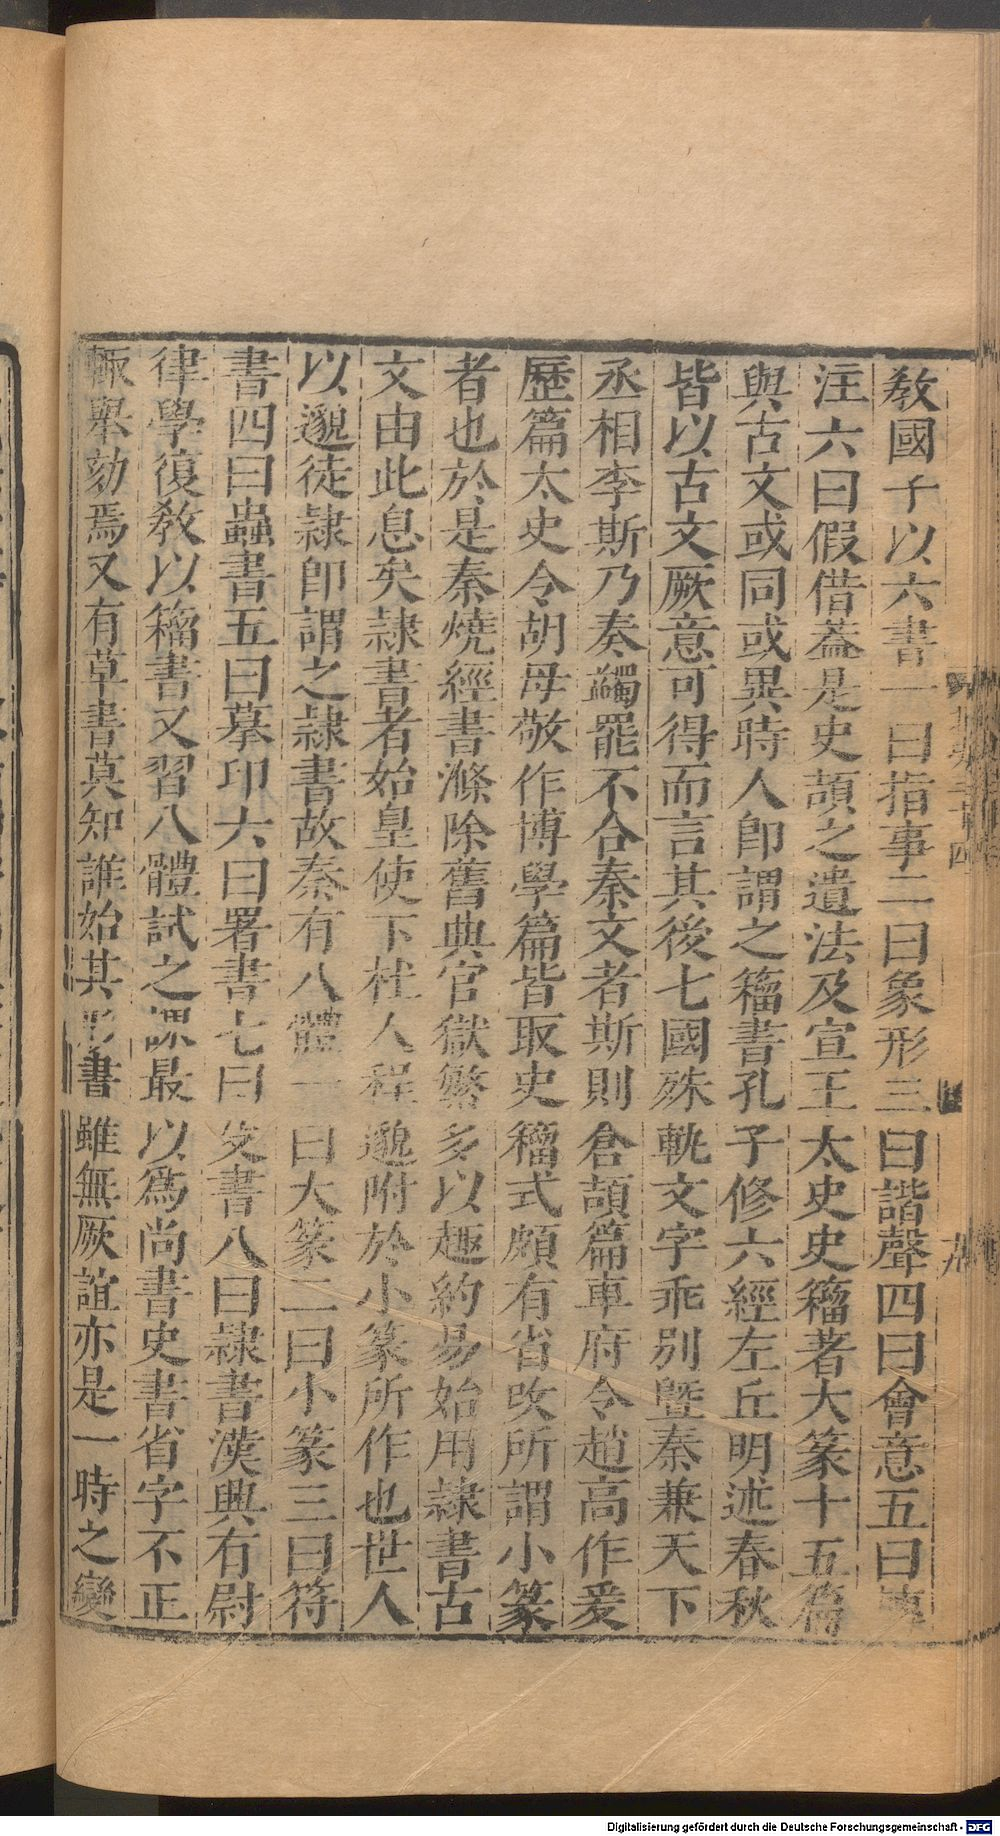 教國子以六書一曰指事二曰象形三曰諧聲四曰會意五曰
注六曰假借葢是史頡之遺法及宣王太史史籀著大篆十五篇
與古文或同或異時人卽謂之籀書孔子修六經左丘明述春秋
皆以古文厥意可得而言其後七國殊軌文字乖別曁秦兼天下
丞相李斯乃奏蠲罷不合秦文者斯則倉頡篇車府令趙高作爰
歷篇太史令胡母敬作博學篇皆取史籀式頗有省改所謂小篆
者也於是秦燒經書滌除舊典官獄繁多以趣約易始用隸書古
文由此息矣隸書者始皇使下杜人程邈附於小篆所作也世人
以邈徒隸卽謂之隸書故秦有八體一曰大篆二曰小篆三曰符
書四曰蟲書五曰摹印六曰署書七曰殳書八曰隸書漢興有尉
律學復敎以籀書又習八體試之課最以爲尚書史書省字不正
輒舉劾焉又有草書莫知誰始其形書雖無厥誼亦是一時之變
九
Digitalisierung gefördert durch die Deutsche Forschungsgemeinschaft - DFG